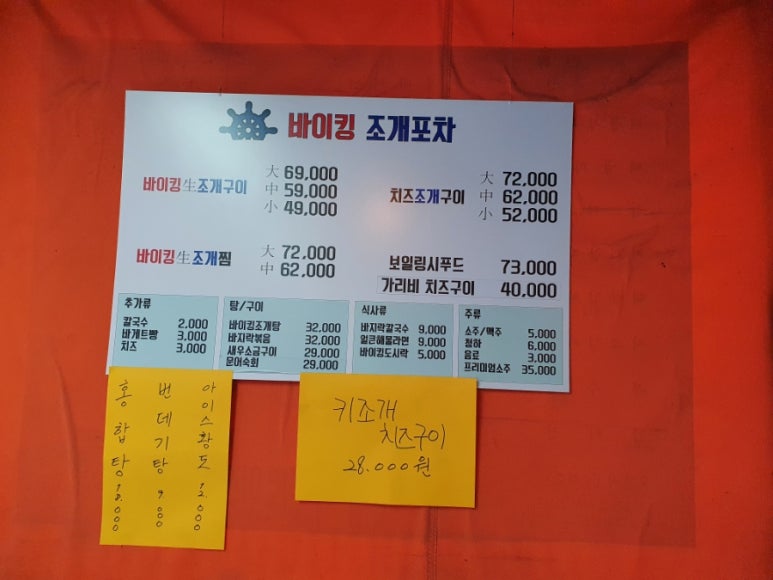 바이킹 조개포차
바이킹生조개구이
大 69,000
中 59,000
小 49,000
치즈조개구이
大 72,000
中 62,000
小 52,000
바이킹生조개찜
大 72,000
中 62,000
보일링시푸드 73,000
가리비 치즈구이 40,000
추가류
칼국수 2,000
바게트빵 3,000
치즈 3,000
탕/구이
바이킹조개탕 32,000
바지락볶음 32,000
새우소금구이 29,000
문어숙회 29,000
식사류
바지락칼국수 9,000
얼큰해물라면 9,000
바이킹도시락 5,000
주류
소주/맥주 5,000
청하 6,000
음료 3,000
프리미엄소주 35,000
홍합탕 18.000
번데기탕 9.000
아이스황도 12.000
키조개
치즈구이
28.000원